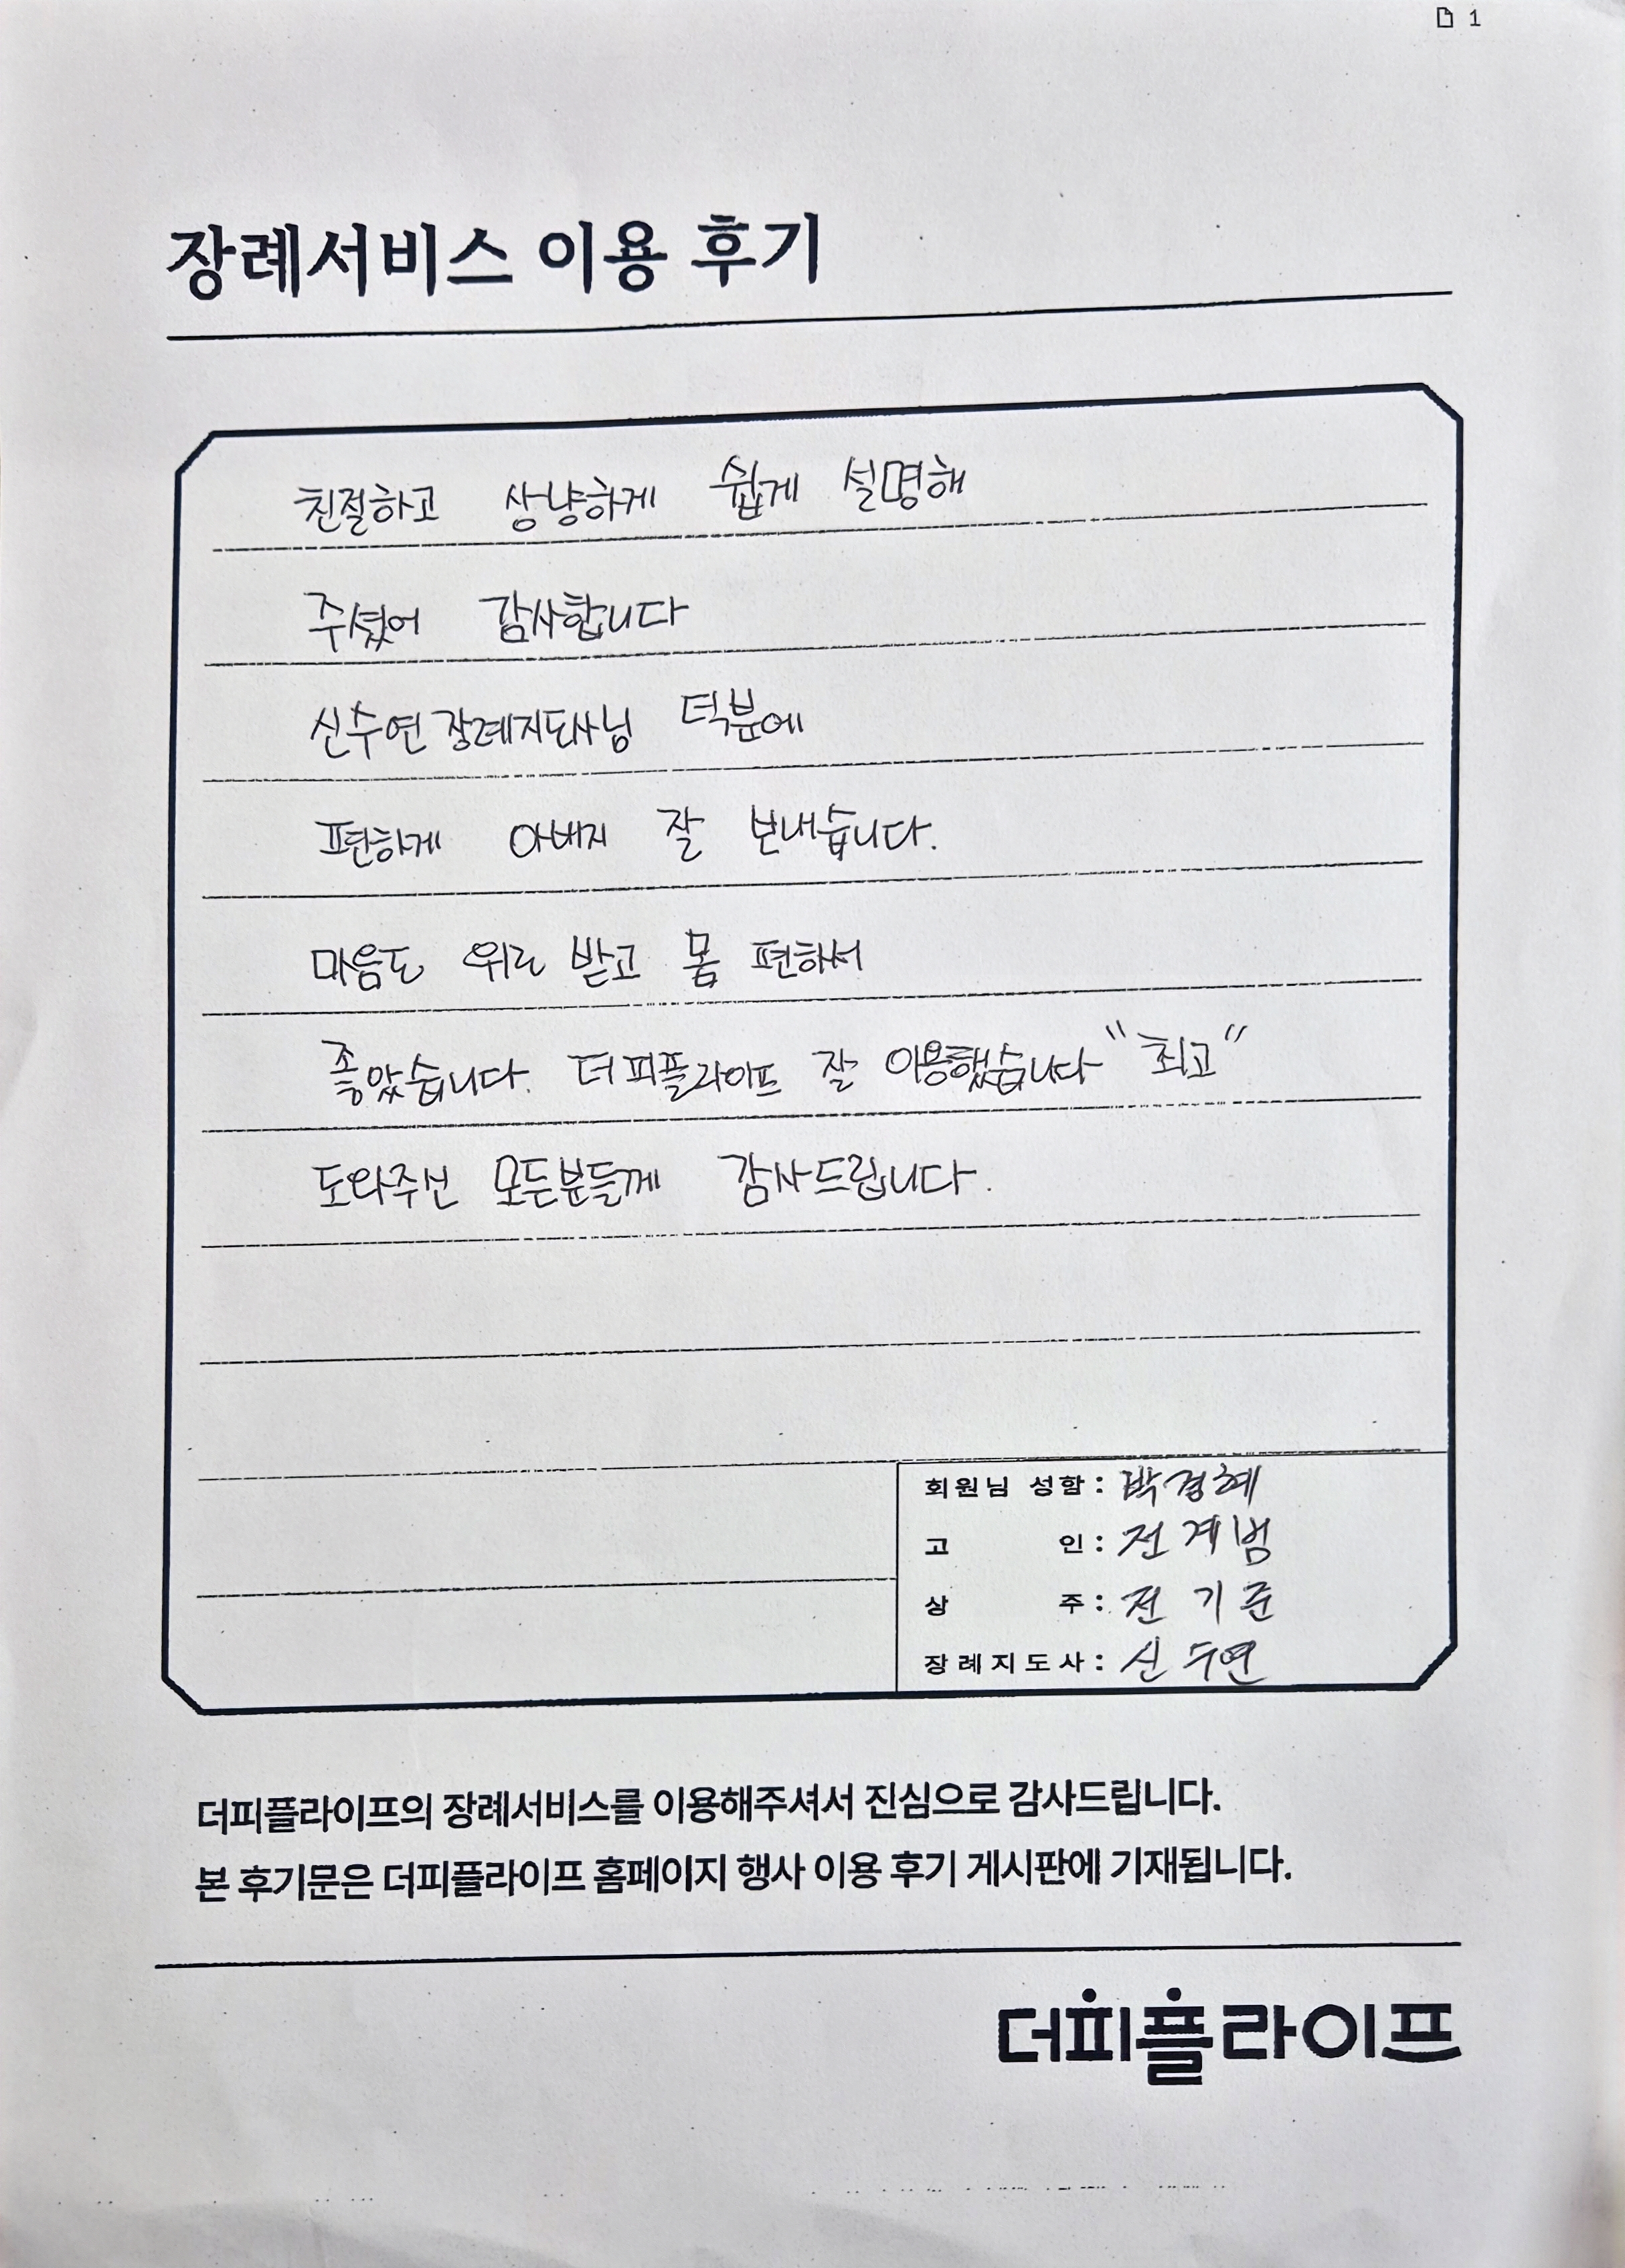 1
장례서비스 이용 후기
친절하고 상냥하게 쉽게 설명해
주셨어 감사합니다
신수연 장례지도사님 덕분에
편하게 아버지 잘 보내습니다.
마음도 위로 받고 몸 편하서
좋았습니다. 더피플라이프 잘 이용했습니다 "최고"
도와주신 모든분들께 감사드립니다.
회원님 성함 : 박경혜
고 인 : 전계범
상 주 : 전기준
장례지도사 : 신수연
더피플라이프의 장례서비스를 이용해주셔서 진심으로 감사드립니다.
본 후기문은 더피플라이프 홈페이지 행사 이용 후기 게시판에 기재됩니다.
더피플라이프